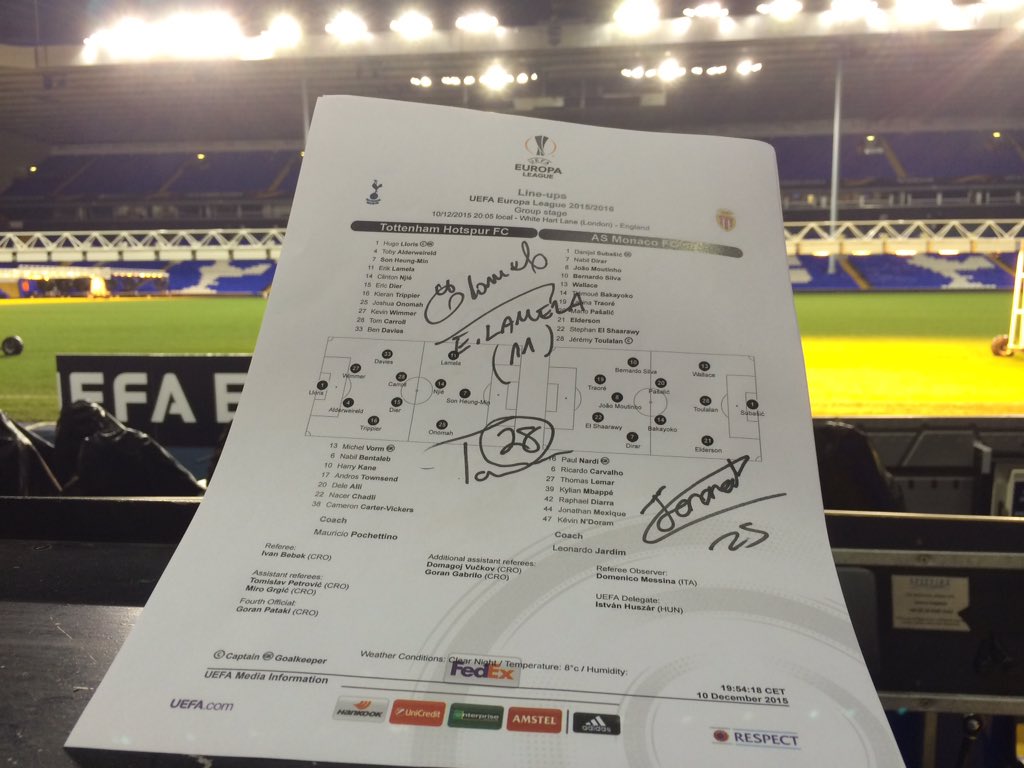 UEFA
EUROPA
LEAGUE
Line-ups
UEFA Europa League 2015/2016
Group stage
10/12/2015 20:05 local - White Hart Lane (London) - England
Tottenham Hotspur FC
1 Hugo Lloris
4 Toby Alderweireld
7 Son Heung-Min
11 Erik Lamela
14 Clinton Njié
15 Eric Dier
16 Kieran Trippier
25 Joshua Onomah
27 Kevin Wimmer
28 Tom Carroll
33 Ben Davies
AS Monaco FC
1 Danijel Subašić
7 Nabil Dirar
8 João Moutinho
10 Bernardo Silva
13 Wallace
14 Tiémoué Bakayoko
19 Lacina Traoré
Mario Pašalić
21 Elderson
22 Stephan El Shaarawy
28 Jérémy Toulalan
E. LAMELA
(11)
33
Davies
27
Wimmer
1
Lloris
4
Alderweireld
16
Trippier
28
Carroll
15
Dier
11
Lamela
14
Njié
7
Son Heung-Min
25
Onomah
10
Bernardo Silva
19
Traoré
8
João Moutinho
22
El Shaarawy
7
Dirar
20
Pašalić
14
Bakayoko
13
Wallace
28
Toulalan
21
Elderson
1
Subašić
28
13 Michel Vorm
6 Nabil Bentaleb
10 Harry Kane
17 Andros Townsend
20 Dele Alli
22 Nacer Chadli
38 Cameron Carter-Vickers
Coach
Mauricio Pochettino
16 Paul Nardi
6 Ricardo Carvalho
27 Thomas Lemar
39 Kylian Mbappé
42 Raphael Diarra
44 Jonathan Mexique
47 Kévin N'Doram
Coach
Leonardo Jardim
25
Referee:
Ivan Bebek (CRO)
Assistant referees:
Tomislav Petrović (CRO)
Miro Grgić (CRO)
Fourth Official:
Goran Pataki (CRO)
Additional assistant referees:
Domagoj Vučkov (CRO)
Goran Gabrilo (CRO)
Referee Observer:
Domenico Messina (ITA)
UEFA Delegate:
István Huszár (HUN)
C Captain GK Goalkeeper
Weather Conditions: Clear Night / Temperature: 8°c / Humidity:
FedEx
UEFA Media Information
19:54:18 CET
10 December 2015
UEFA.com
HANKOOK
UniCredit
enterprise
AMSTEL
adidas
RESPECT
EFA E